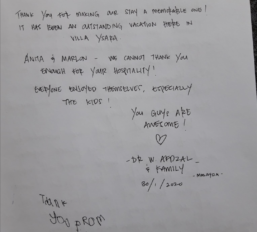 THANK YOU FOR MAKING OUR STAY A MEMORABLE ONE!
IT HAS BEEN AN OUTSTANDING VACATION HERE IN
VILLA
ANITA & MARLON - WE CANNOT THANK YOU
ENOUGH FOR YOUR HOSPITALITY!
EVERYONE ENJOYED THEMSELVES, ESPECIALLY
THE KIDS!
YOU GUYS ARE
AWESOME!
- DR W AFDZAL
& FAMILY
30/1/2020
THANK
YOU FROM